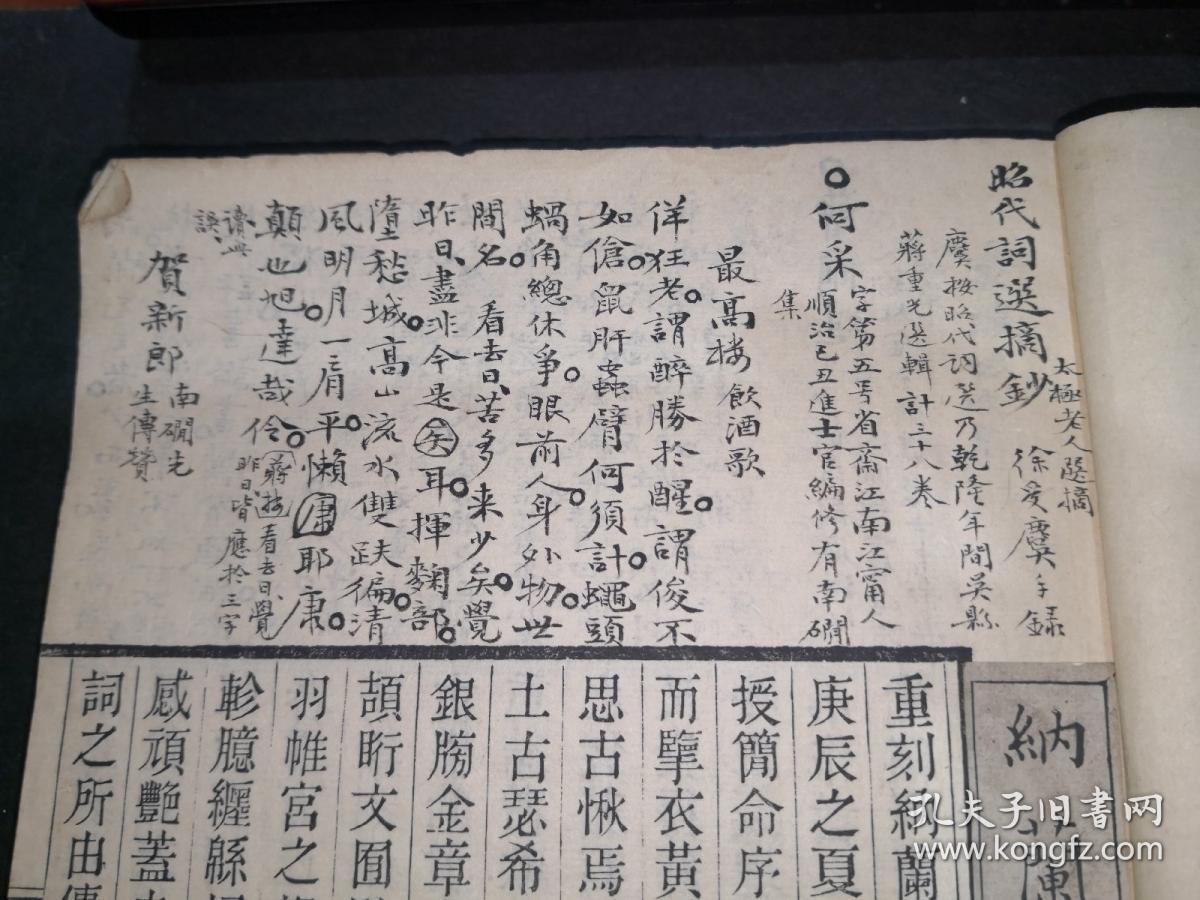 昭代詞選摘鈔
太極老人選摘
徐爰廙手録
廙按昭代詞選乃乾隆年間吳縣
蔣重光選輯計三十八卷
何采
字第五号省齋江南江甯人
順治己丑進士官編修有南磵
集
最高楼 飲酒歌
佯狂老。謂醉勝於醒。謂俊不
如傖。鼠肝蟲臂何須計。蠅頭
蝸角總休爭。眼前人。身外物。世
間名。 看去日、苦多来少矣。覺
昨日、盡非今是矣耳。揮麴部。
墮愁城。高山流水雙趺徧。清
風明月一肩平。懶康耶康。
顛也旭。達哉伶。
蔣按看去日、覺
昨日皆應於三字
讀與
誤
賀新郎
南磵先
生傳贊
納蘭
重刻納蘭
庚辰之夏
授簡命序
而犨衣黃
思古愀焉
土古瑟希
銀牓金章
頡盺文囿
羽帷宮之
軫臆纏緜
感頑豔蓋
詞之所由傳
孔夫子旧書网
www.kongfz.com